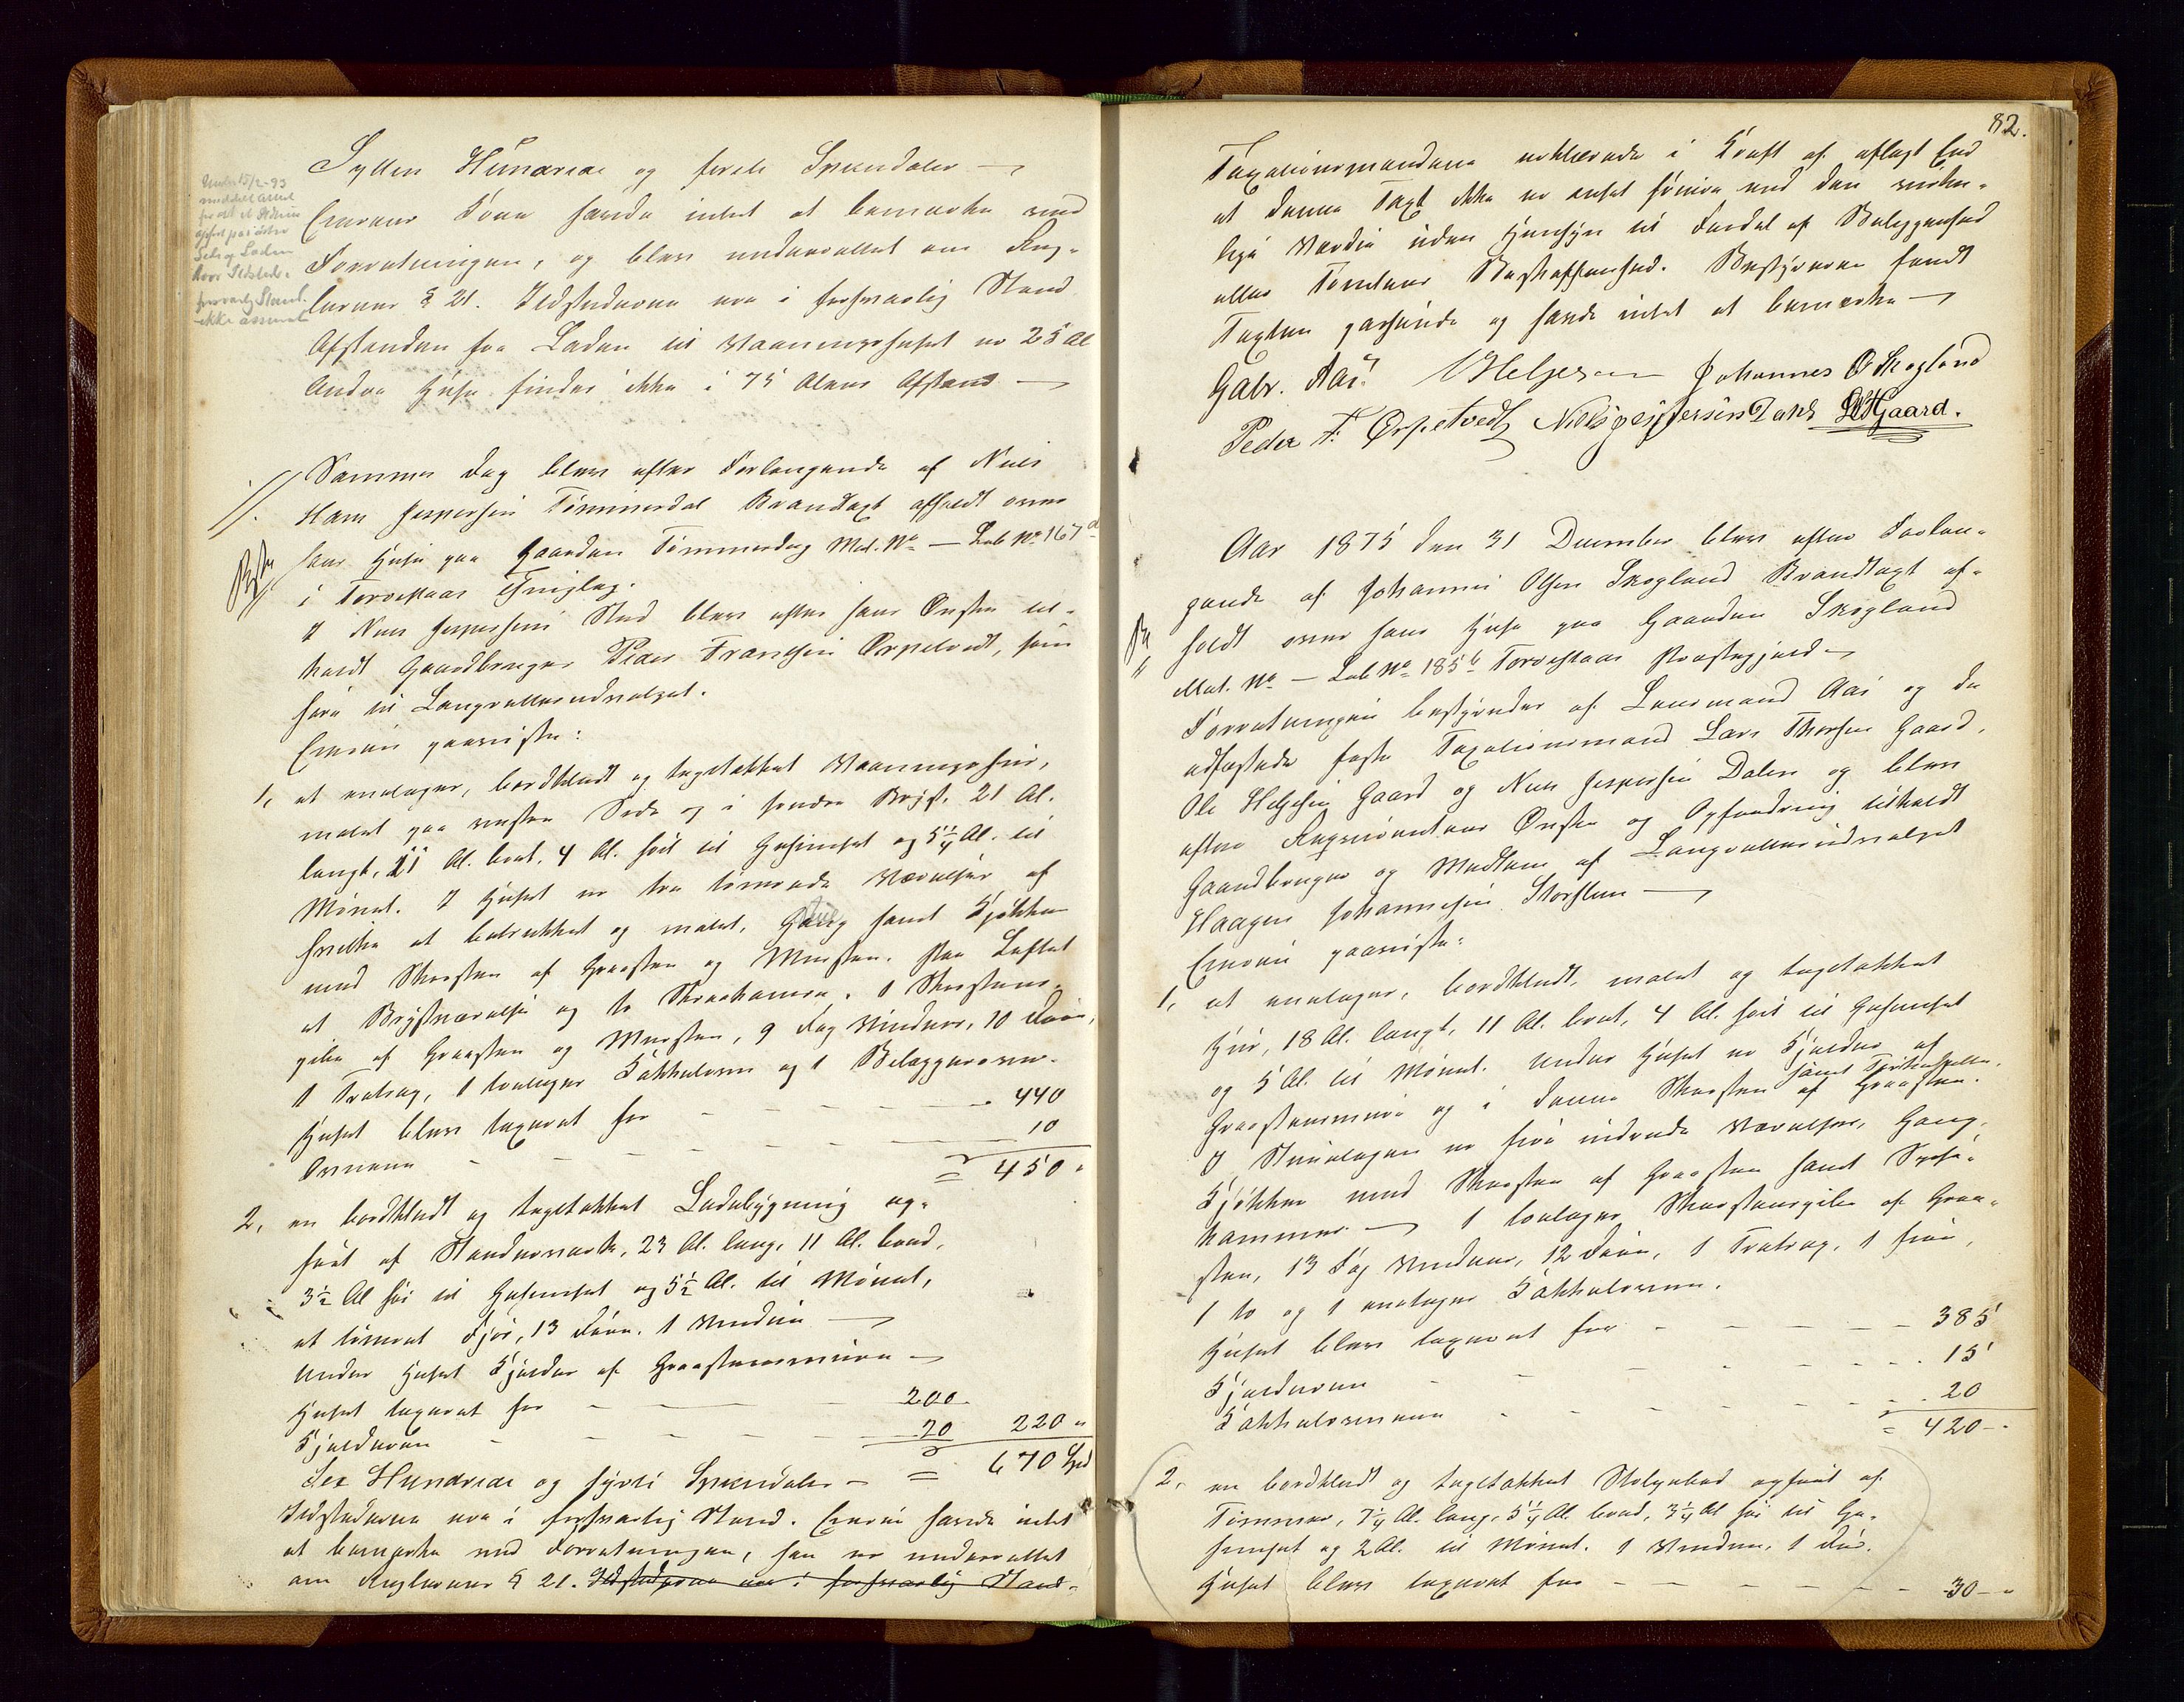 Sytten Hundrede og førti Speciedaler —
Eieren Søren havde intet at bemærke ved
Forretningen, og blev underrettet om Reg-
lernes § 21. Ildstederne ere i forsvarlig Stand
Afstanden fra Laden til Vaaningshuset er 25 Al
Andre Huse findes ikke i 75 Alens Afstand —
Samme Dag blev efter Forlangende af Niels
Hans Jespersen Tømmerdal Brandtaxt afholdt over
hans Huse paa Gaarden Tømmerdal Mat. No — Løb No 167 d
i Torvestads Thinglag.
I Niels Jespersens Sted blev efter hans Ønske til-
kaldt Gaardbruger Peder Fransen Ørpetvedt, som
hører til Lagrettesudvalget.
Eieren paaviste:
1, et enetages, bordklædt og tegltækket Vaaningshuus,
malet paa vestre Side og i søndre Bryst. 21 Al.
langt, 11 Al. bred, 4 Al. høit til Gesimset og 5¼ Al. til
Mønet. I Huset er tre tømrede Værelser af
hvilke et betrukket og malet, Gang samt Kjøkken
med Skorsten af Graasten og Mursten. Paa Loftet
et Brystværelse og to Skraakamre. 1 Skorstens-
pibe af Graasten og Mursten, 9 Fag Vinduer, 10 Døre,
1 Trætrap, 1 toetages Kakkelovn og 1 Bilæggerovn.
Huset blev taxeret for — — — 440
Ovnene — — — 10
= 450 "
2, en bordklædt og tegltækket Ladebygning op-
ført af Standerværk, 23 Al. lang, 11 Al. bred,
3½ Al høi til Gesimset og 5½ Al. til Mønet,
et tømret Fjøs, 13 Døre. 1 Vindue —
Under Huset Kjelder af Graastensmure —
Huset taxeret for — — 200
Kjelderen — — 20 220 "
Sex Hundrede og syvti Speciedaler — = 670 Spd
Ildstederne ere i forsvarlig Stand. Eieren havde intet
at bemærke ved Forretningen, han er underrettet
om Reglernes § 21. Ildstederne ere i forsvarlig Stand.
82.
Taxationsmændene erklærede i Kraft af aflagt Eed
at denne Taxt ikke er ansat høiere end den virke-
lige Værdie uden Hensyn til Fordel af Beliggenhed
eller Tomtens Beskaffenhed. Bestyreren fandt
Taxten passende og havde intet at bemærke —
Gabr. Aas. Helgesen Johannes O Skogland
Peder F. Ørpetvedt Niels Jespersen Dalen LTGaard.
Aar 1875 den 31 December blev efter Forlan-
gende af Johannes Olsen Skogland Brandtaxt af-
holdt over hans Huse paa Gaarden Skogland
Mat. No — Løb No 185 b Torvestads Præstegjeld —
Forretningen bestyredes af Lensmand Aas og de
edfæstede faste Taxationsmænd Lars Thorsen Gaard,
Ole Helgesen Gaard og Niels Jespersen Dalen og blev
efter Reqvirentens Ønske og Opfordring tilkaldt
Gaardbruger og Medlem af Lagrettesudvalget
Haagen Johannesen Storsteen —
Eieren paaviste:
1, et enetages, bordklædt, malet og tegltækket
Huus, 18 Al. langt, 11 Al. bred, 4 Al. høit til Gesimset
og 5 Al. til Mønet. Under Huset er Kjelder af
Graastensmure og i denne Skorsten af Graasten.
I Stueetagen er fire indrede Værelser, Gang,
Kjøkken med Skorsten af Graasten samt Spise-
kammer — 1 toetages Skorstenspibe af Graa-
sten, 13 Fag Vinduer, 12 Døre, 1 Trætrap. 1 fire,
1 to og 1 enetages Kakkelovne.
Huset blev taxeret for — — — 385
Kjelderen — — — 15
Kakkelovnene — — — 20
= 420 —
2, en bordklædt og tegltækket Stolpebod opført af
Tømmer, 7¼ Al. lang, 5¼ Al. bred, 3¼ Al høi til Ge-
simset og 2 Al. til Mønet. 1 Vindue, 1 Dør.
Huset blev taxeret for — — — 30 —